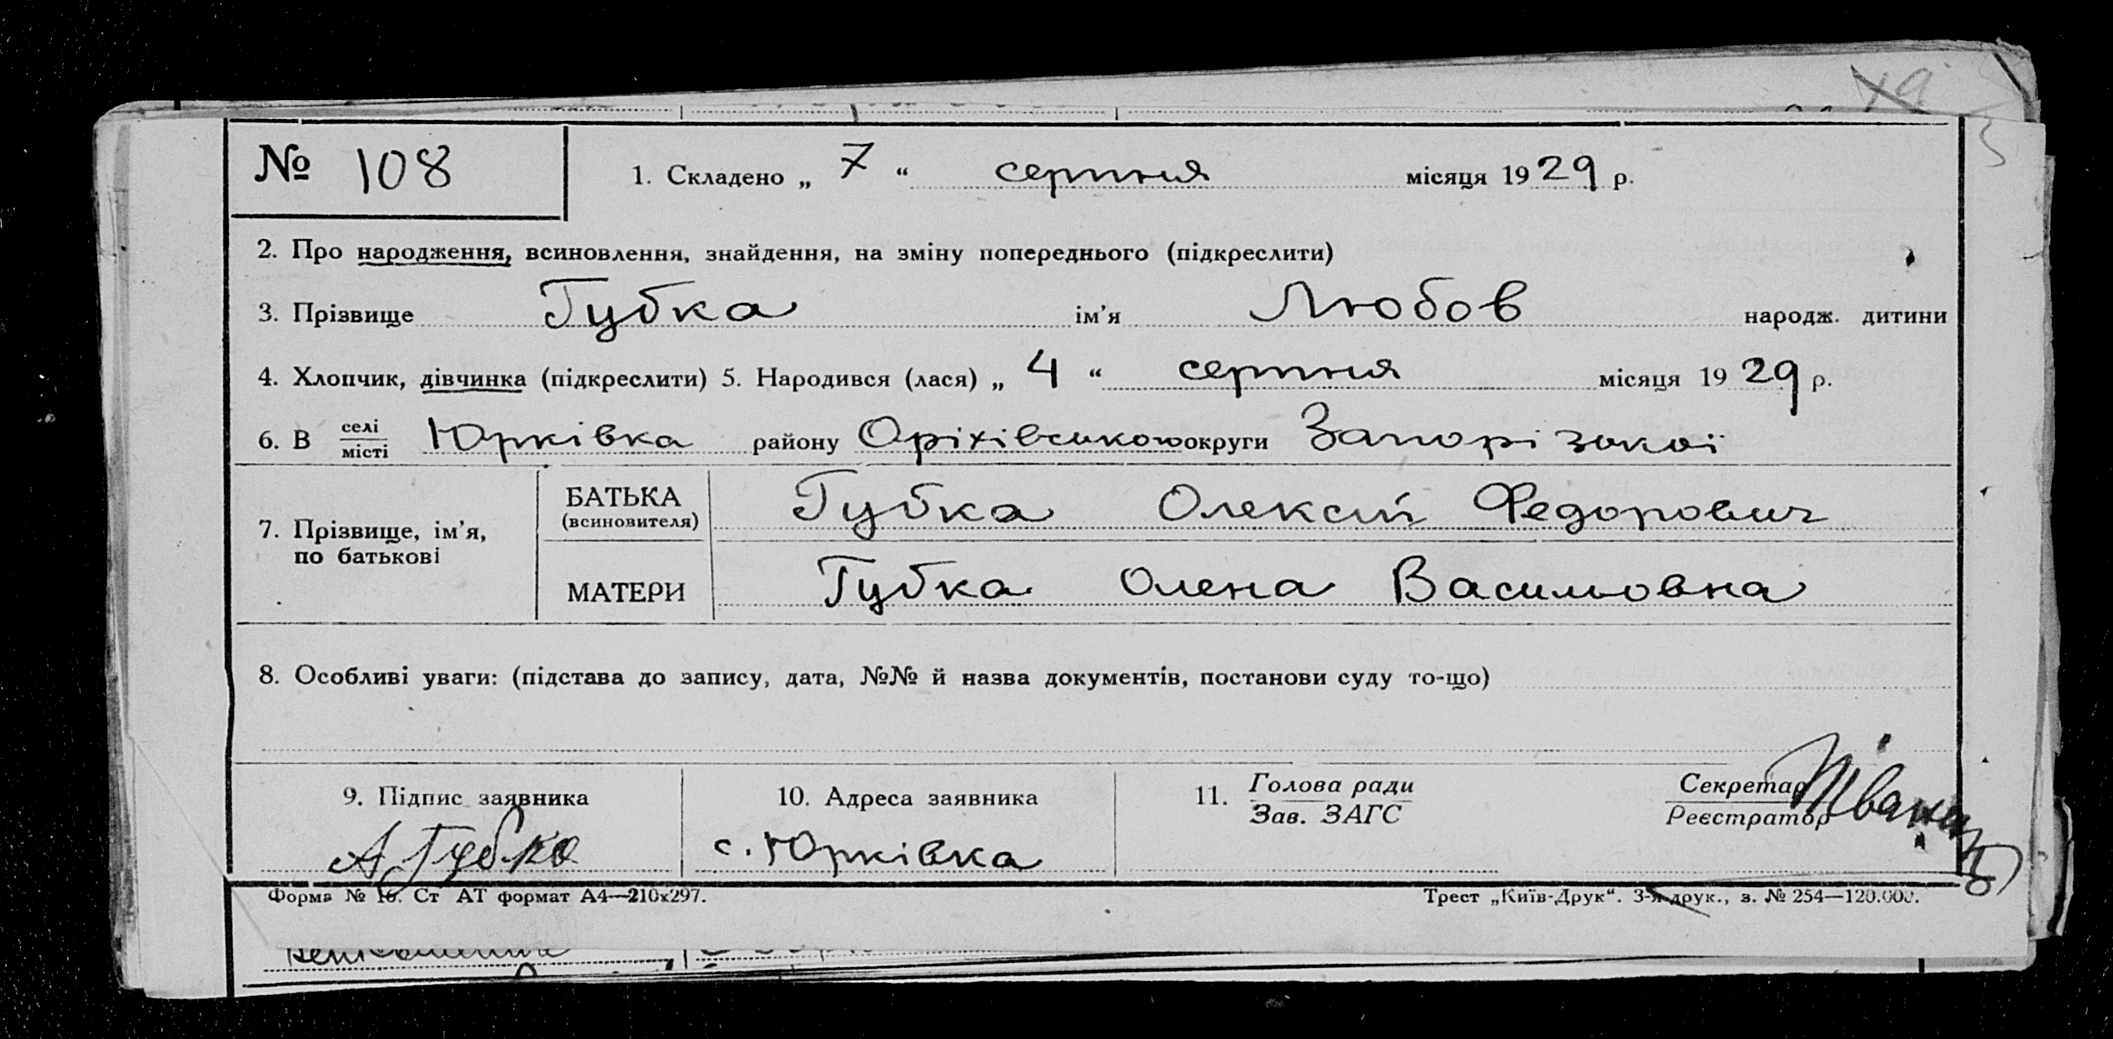 № 108
1. Складено „ 7 “ серпня місяця 1929 р.
2. Про народження, всиновлення, знайдення, на зміну попереднього (підкреслити)
3. Прізвище Губка ім'я Любов народж. дитини
4. Хлопчик, дівчинка (підкреслити) 5. Народився (лася) „ 4 “ серпня місяця 1929 р.
6. В селі місті Юрківка району Оріхівського округи Запорізької
7. Прізвище, ім'я, по батькові
БАТЬКА (всиновителя) Губка Олексій Федорович
МАТЕРИ Губка Олена Васильовна
8. Особливі уваги: (підстава до запису, дата, №№ й назва документів, постанови суду то-що)
9. Підпис заявника
А Губка
10. Адреса заявника
с. Юрківка
11. Голова ради
Зав. ЗАГС
Секретар
Реєстратор
Форма № 10. Ст АТ формат А4—210х297.
Трест „Київ-Друк“. 3-я друк., з. № 254—120.000.